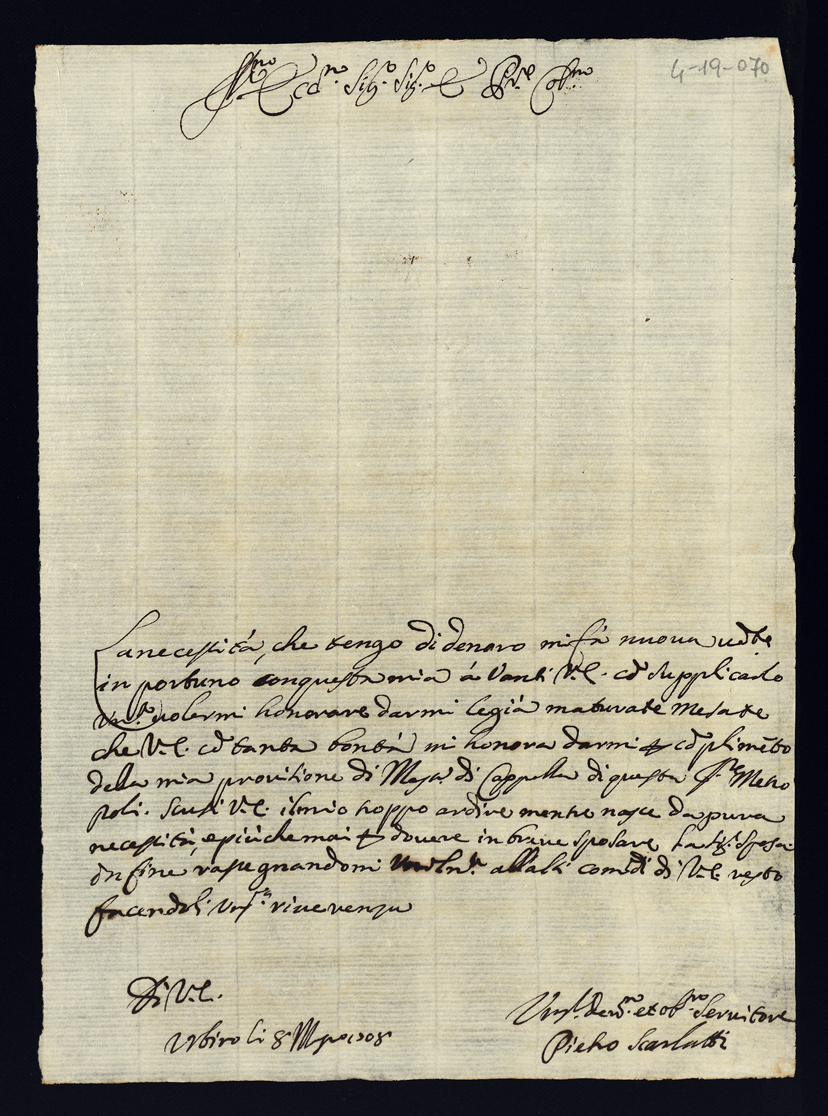 4-19-070
Ill.mo Ecc.mo Sig.r Sig.r e P.ne Col.mo
La necessità, che tengo di denaro mi fà nuova
in portuno con questa mia à Vanti V.E. cō supplicarlo
volermi honorare darmi le già maturate mesate
che V.E. cō tanta bontà mi honora darmi p cōplimēto
della mia provisione di Mes.o di Cappella di questa Metro
poli. Scusi V.E. il mio troppo ardire mentre nasce da pura
necessità, e più che mai p dovere in breve sposare la Sig.a sposa
In fine rassegnandomi all'alti comdi di V.E. resto
facendoli riverenza
Di V.E.
Urbino li 8 1708
Um.o dev.mo et ob.mo Servitore
Pietro Scarlatti